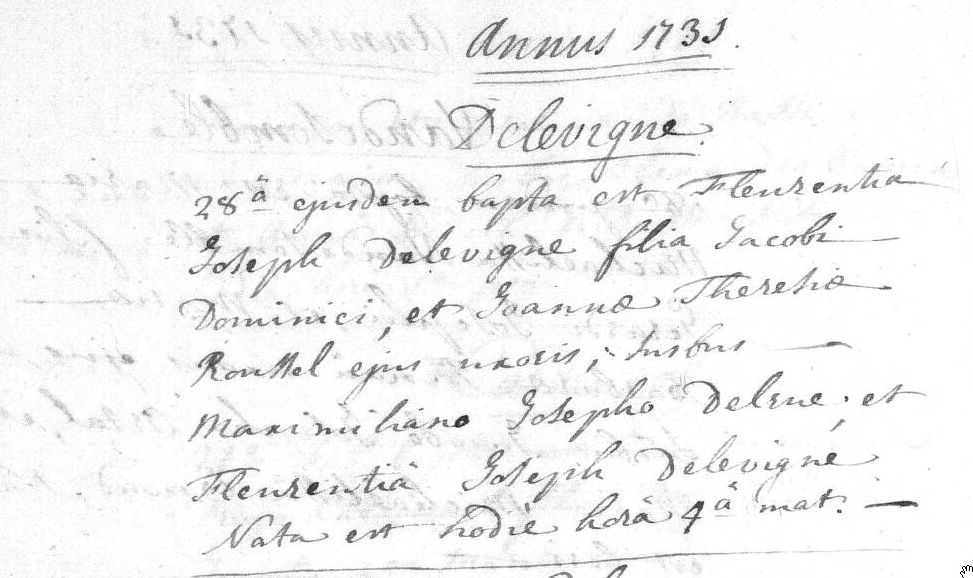 Annus 1731.
Delevigne.
28â ejusdem bapta est Fleurentia
Joseph Delevigne filia Jacobi
Dominici, et Joannæ Theresiæ
Roussel ejus uxoris; Susbus
Maximiliano Josepho Delrue, et
Fleurentiâ Joseph Delevigne
Nata est hodiè horâ 4â mat.